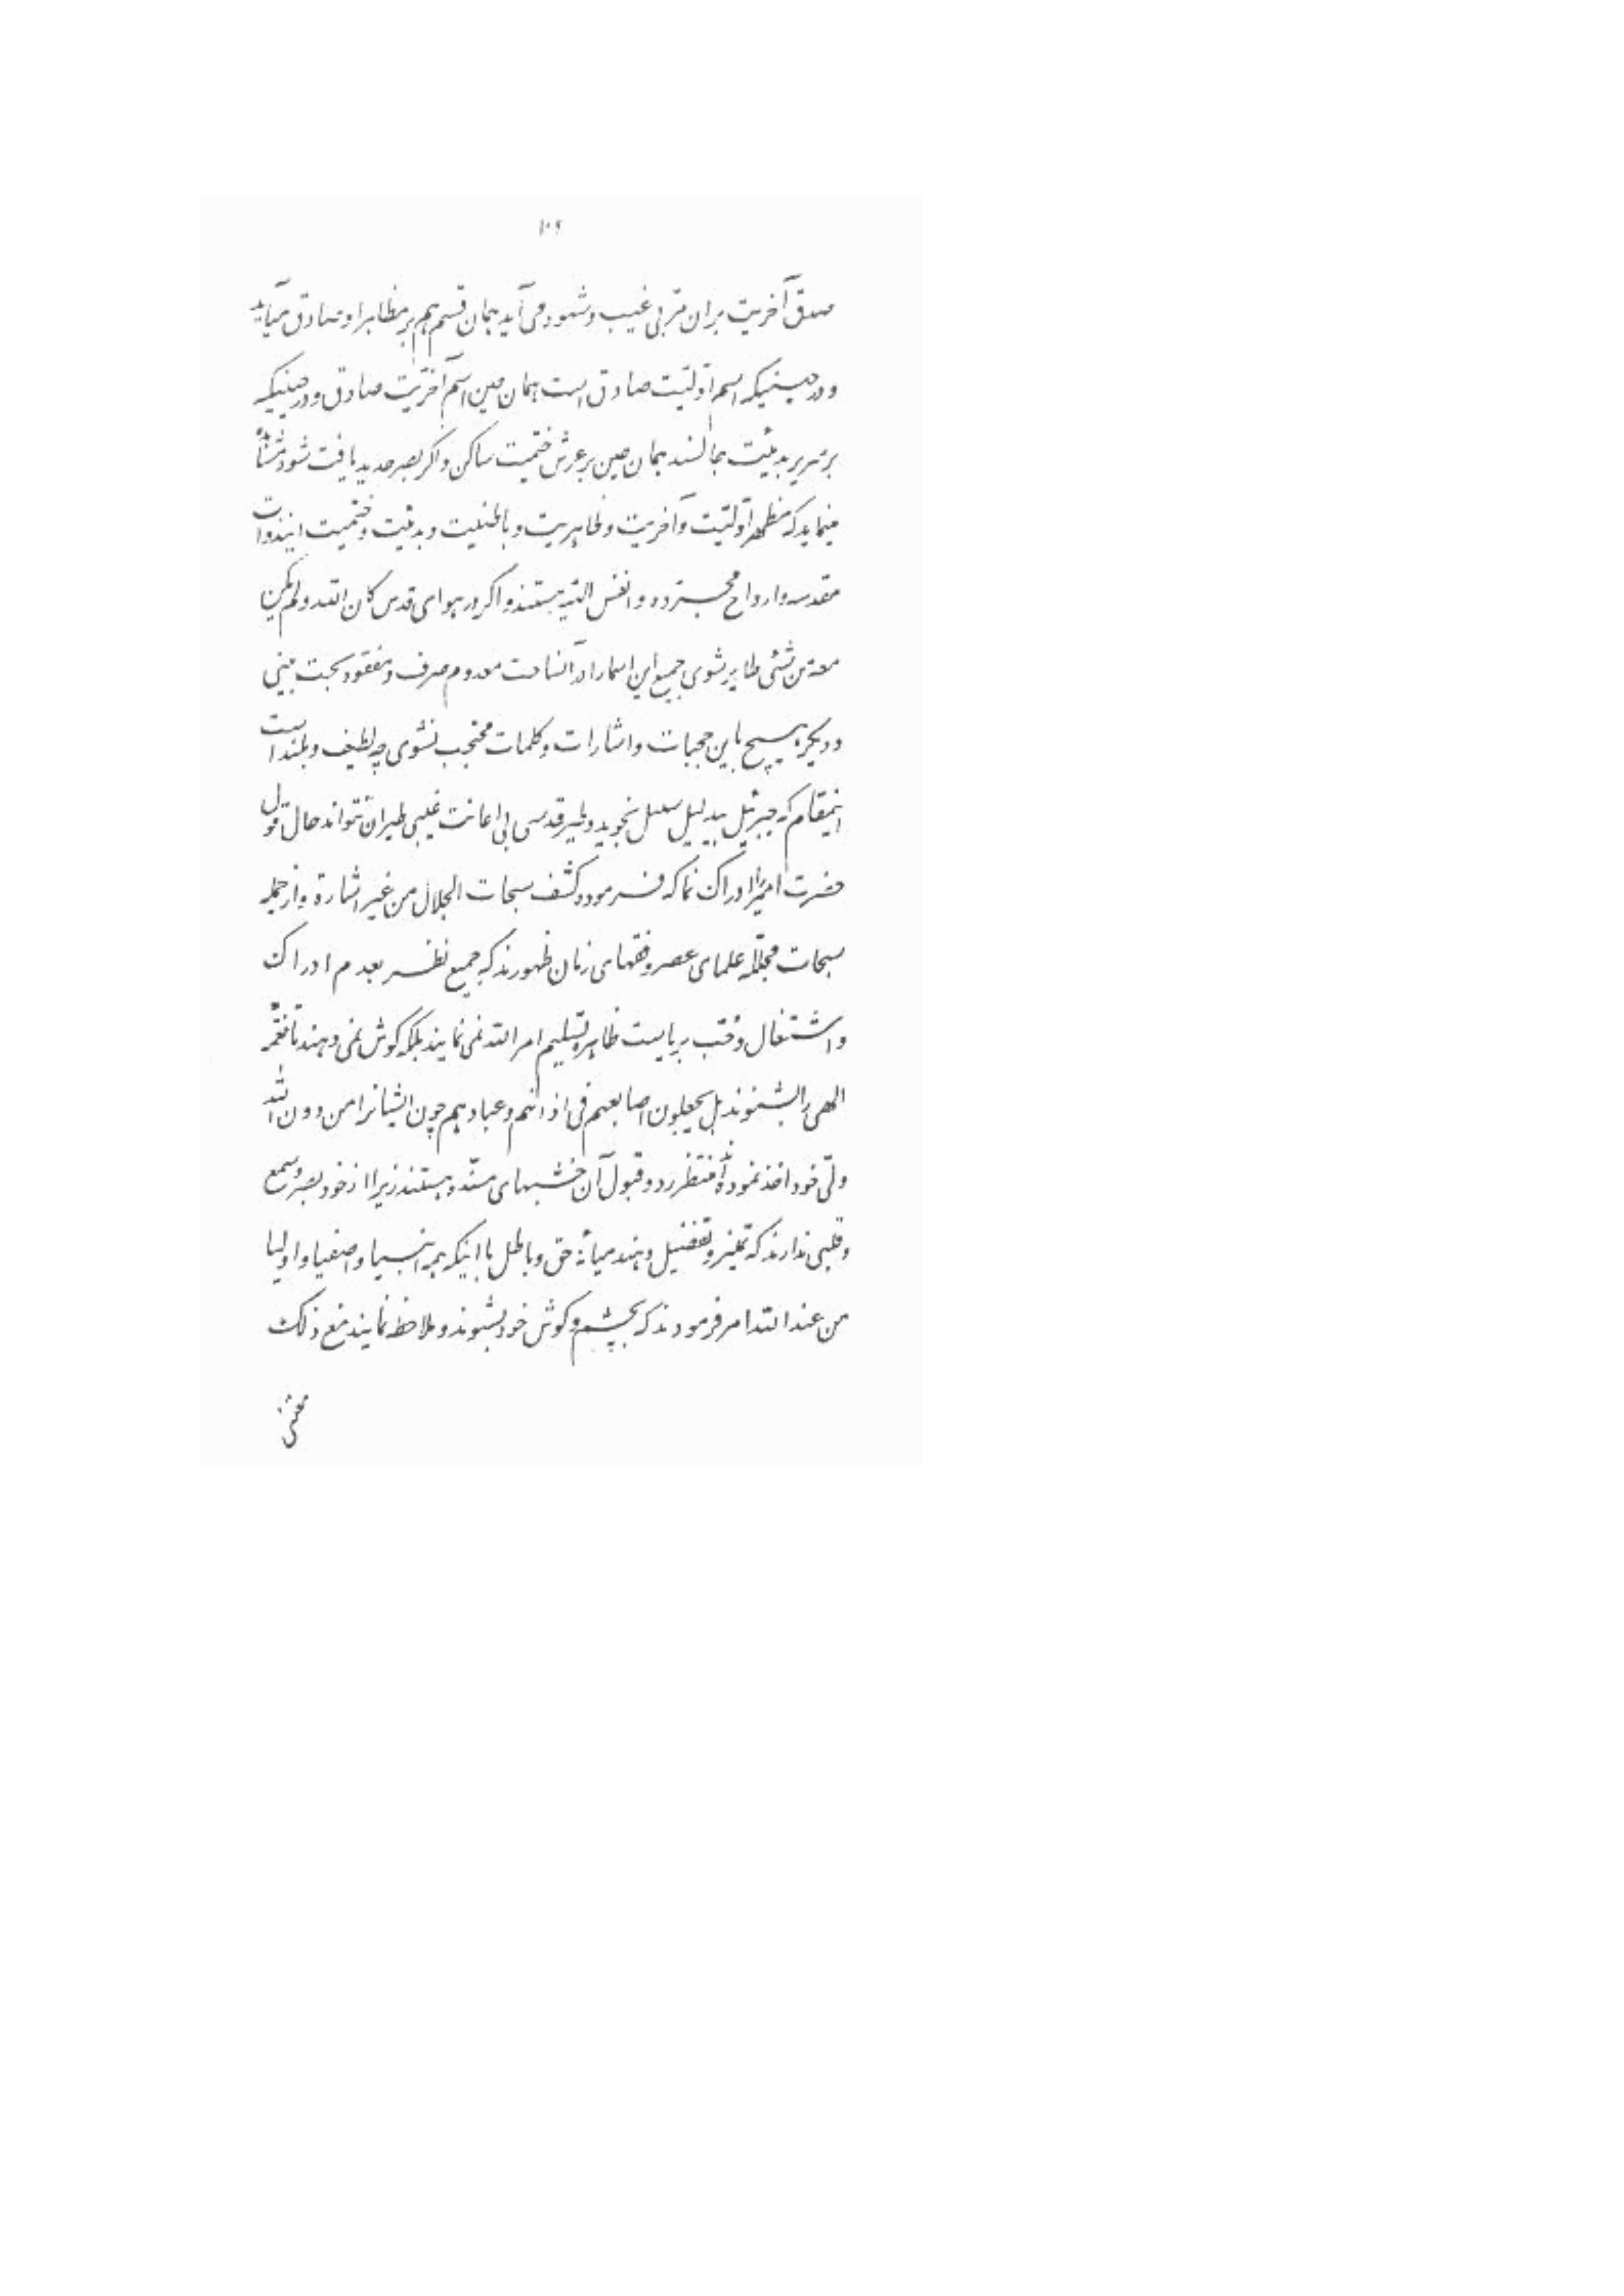 ۱۰۹
صدق آخریت بر ان مربی غیب و شهود می آید همان قسم هم بر مظاهر او صادق میآید
و در حینیکه اسم اوّلیّت صادق است همان حین اسم آخریّت صادق و در حینیکه
بر سریر بدئیّت جالسند همان حین بر عرش ختمیّت ساکن و اگر بصر حدید یافت شود مشاهده
مینماید که مظهر اوّلیّت و آخریت و ظاهریت و باطنیت و بدئیّت و ختمیت این ذوات
مقدسه و ارواح مجرّده و انفس الهیّه هستند و اگر در هوای قدس کان الله و لم یکن
معه من شئی طایر شوی جمیع این اسما را در آنساحت معدوم صرف و مفقود بحت بینی
و دیگر هیچ باین حجبات و اشارات و کلمات محتجب نشوی چه لطیف و بلند است
اینمقام که جبرئیل بیدلیل سبیل نجوید و طیر قدسی بی اعانت غیبی طیران نتواند حال قول
حضرت امیر را ادراک نما که فرموده کشف سبحات الجلال من غیر اشارة و از جمله
سبحات مجلّله علمای عصر و فقهای زمان ظهورند که جمیع نظر بعدم ادراک
و اشتغال و حّب بریاست ظاهره تسلیم امر الله نمی نمایند بلکه گوش نمی دهند تا نغمه
الهی را بشنوند بل یجعلون اصابعهم فی اذانهم و عباد هم چون ایشانرا من دون الله
ولیّ خود اخذ نموده اند منتظر رد و قبول آن خشبهای مسنّده هستند زیرا از خود بصر و سمع
و قلبی ندارند که تمیز و تفضیل دهند میانه حق و باطل با اینکه همه انبیا و اصفیا و اولیا
من عند الله امر فرمودند که بچشم و گوش خود بشنوند و ملاحظه نمایند مع ذلک